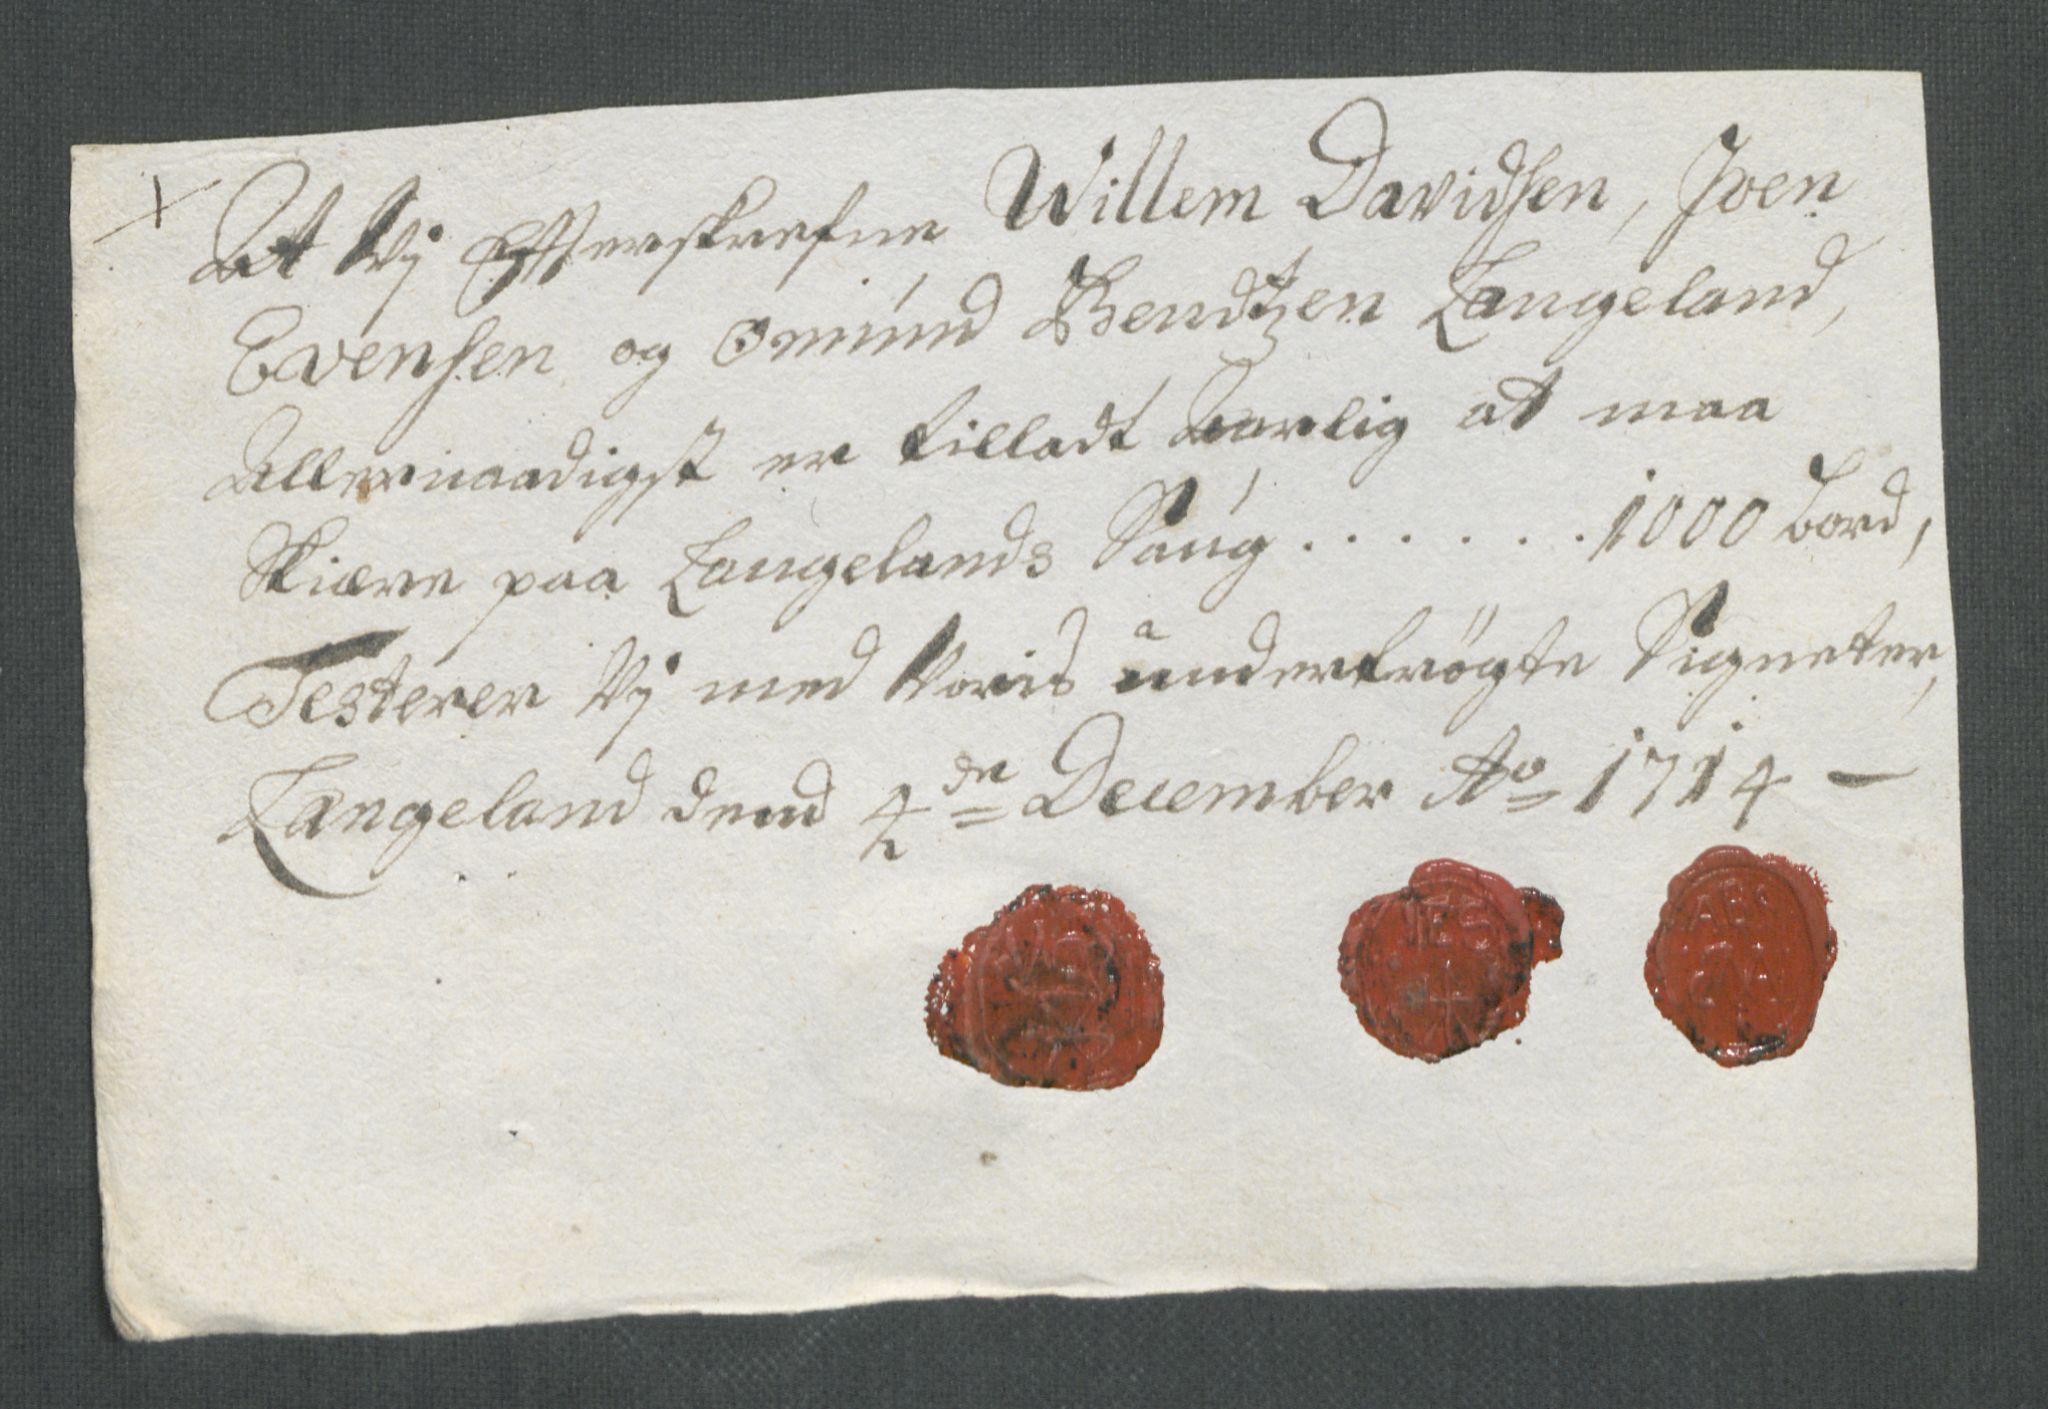 At Wj Efterskrefne Willem Davidsen, Joen
Evensen og Omund Bendtzen Langeland,
Allernaadigst er tilladt Aarlig at maa
Skiære paa Langelands Saug . . . . . . . 1000 bord,
Testerer Wj med Woris undertrögte Signeter,
Langeland dend 4de December Ao 1714 –
IES